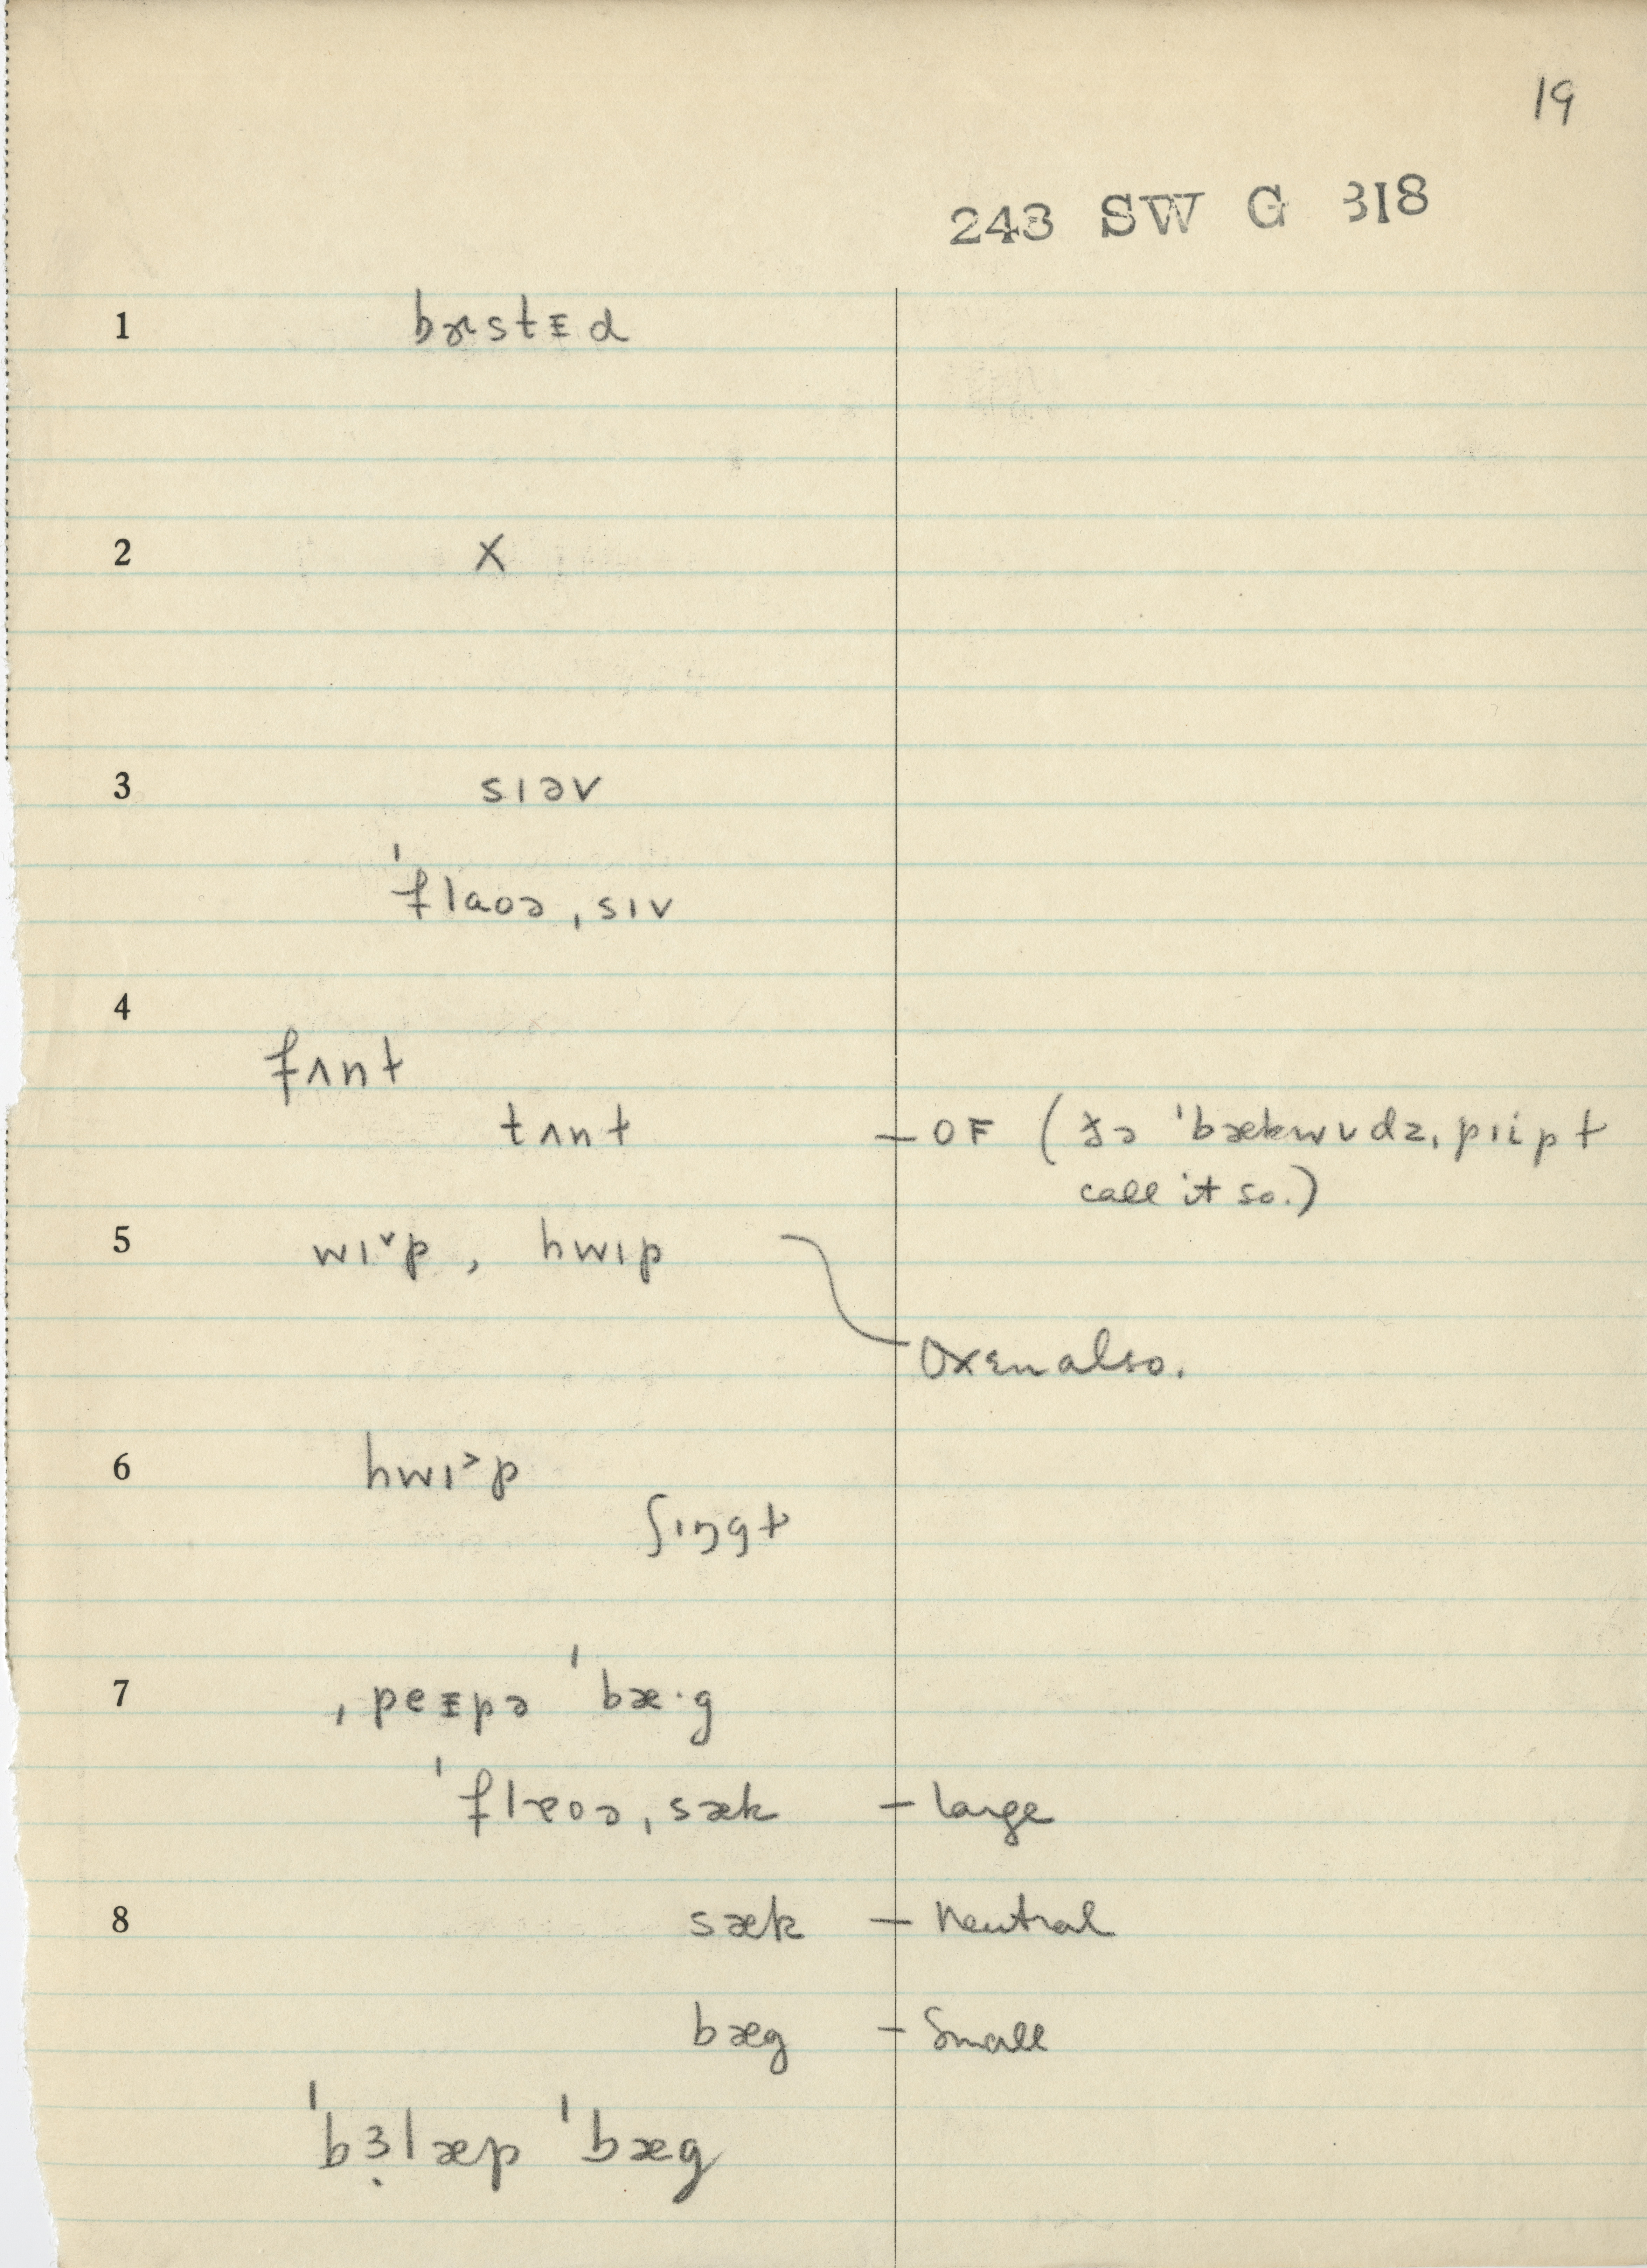 19
243 SW G 318
1 bæstᵻd
2 X
3 sɪəv
ˈflaoə ˌsɪv
4
fʌnɫ
tʌnɫ — OF (ðə ˈbækwʊdz ˌpiipɫ
call it so.)
5 wɪ˅p, hwɪp
Oxen also.
6 hwɪ˃p
ʃɪŋgɫ
7 ˌpeᵻpə ˈbæ·g
ˈflæoə ˌsæk — large
8 sæk — neutral
bæg — small
ˈbɜ̣læp ˈbæg